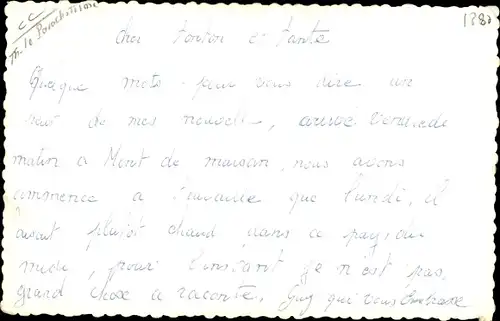 CC
Th. le Parachutisme
1380
cher tonton et tante
Quelque mots pour vous dire un
peut de mes nouvelle, arrivé vendredi
matin a Mont de marsan, nous avons
commencé a que lundi, il
faisait plutot chaud dans ce pays du
midi, pour l'instant je n'est pas
grand chose a raconte. Guy qui vous embrasse